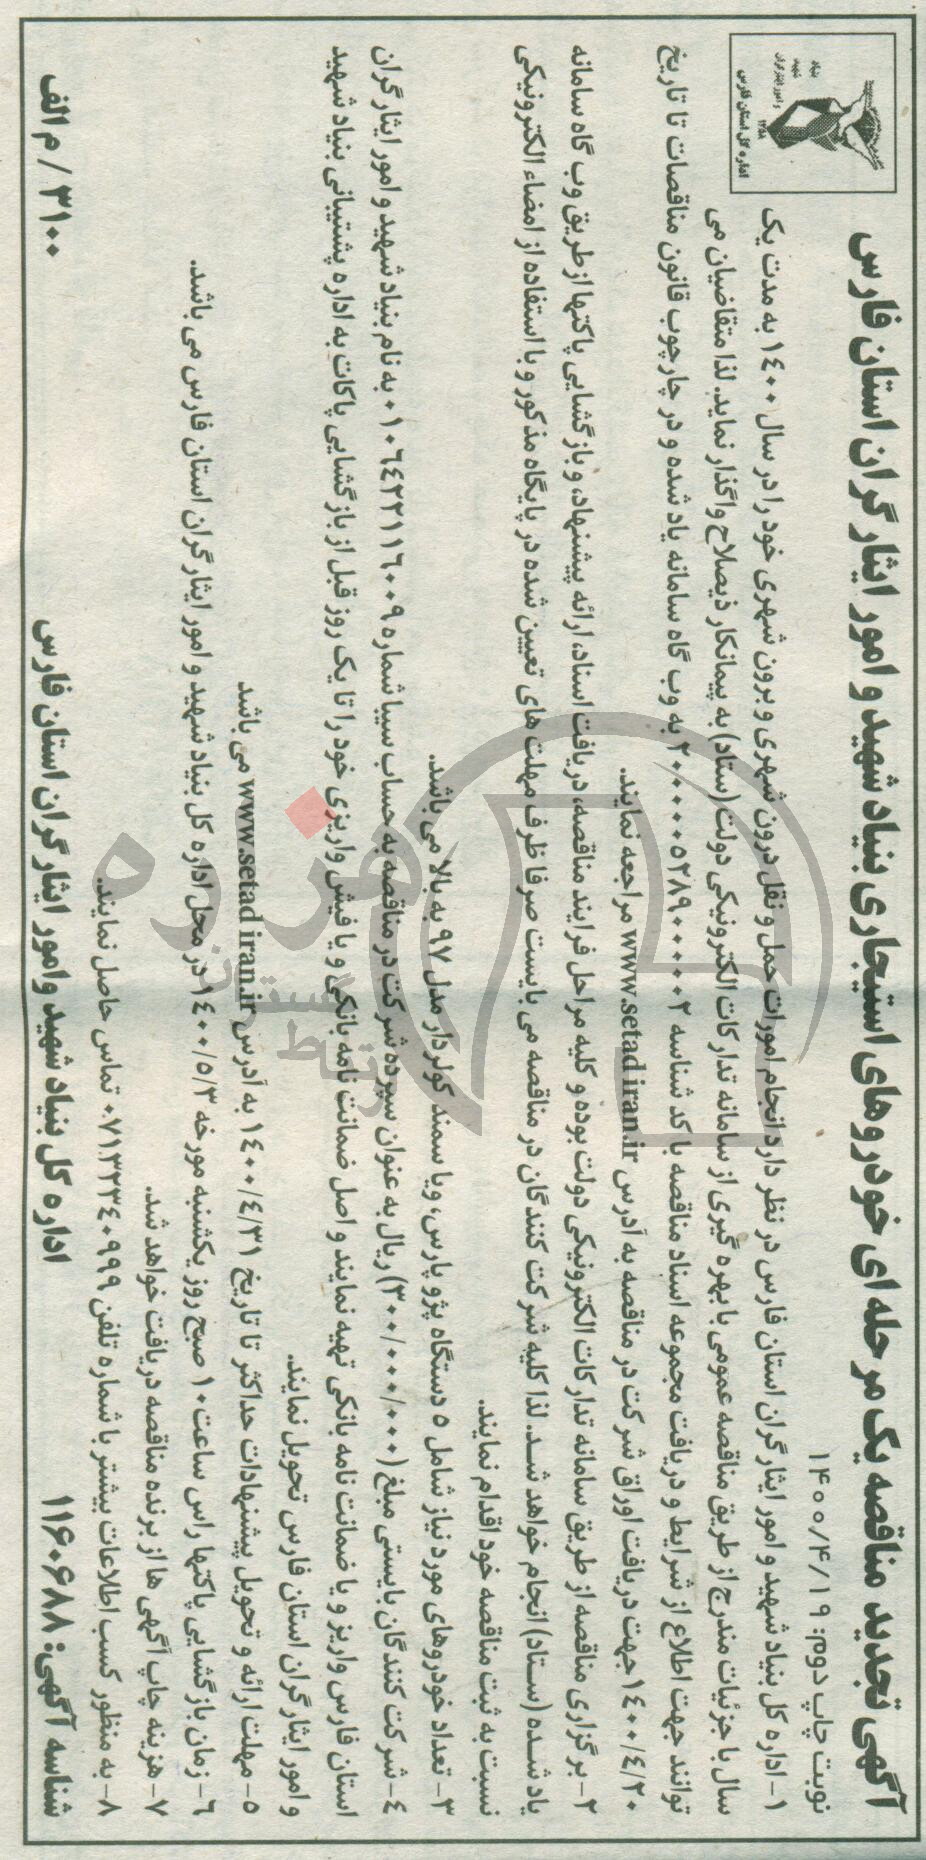 آگهی تجدید مناقصه یک مرحله ای خودروهای استیجاری بنیاد شهید و امور ایثارگران استان فارس
بنیاد
شهید
و امور ایثارگران
۱۳۵۸
اداره کل استان فارس
نوبت چاپ دوم: ۱۴۰۰/۴/۱۹
۱- اداره کل بنیاد شهید و امور ایثارگران استان فارس در نظر دارد انجام امورات حمل و نقل درون شهری و برون شهری خود را در سال ۱۴۰۰ به مدت یک
سال با جزئیات مندرج از طریق مناقصه عمومی با بهره گیری از سامانه تدارکات الکترونیکی دولت (ستاد) به پیمانکار ذیصلاح واگذار نماید. لذا متقاضیان می
توانند جهت اطلاع از شرایط و دریافت مجموعه اسناد مناقصه با کد شناسه ۲۰۰۰۰۰۵۲۸۹۰۰۰۰۰۲ به وب گاه سامانه یاد شده و در چارچوب قانون مناقصات تا تاریخ
۱۴۰۰/۴/۲۰جهت دریافت اوراق شرکت در مناقصه به آدرس www.setad iran.ir مراجعه نمایند.
۲- برگزاری مناقصه از طریق سامانه تدارکات الکترونیکی دولت بوده و کلیه مراحل فرایند مناقصه، دریافت اسناد، ارائه پیشنهاد، و بازگشایی پاکتها ازطریق وب گاه سامانه
یاد شده (ستاد) انجام خواهد شد. لذا کلیه شرکت کنندگان در مناقصه می بایست صرفا ظرف مهلت های تعیین شده در پایگاه مذکور و با استفاده از امضاء الکترونیکی
نسبت به ثبت مناقصه خود اقدام نمایند.
۳- تعداد خودروهای مورد نیاز شامل ۵ دستگاه پژو پارس، ویا سمند کولردار مدل ۹۷ به بالا می باشد.
۴- شرکت کنندگان بایستی مبلغ (۳۰۰/۰۰۰/۰۰۰) ریال به عنوان سپرده شرکت در مناقصه به حساب سیبا شماره ۰۱۰۶۴۲۲۱۱۶۰۰۹ به نام بنیاد شهید و امور ایثارگران
استان فارس واریز و یا ضمانت نامه بانکی تهیه نمایند و اصل ضمانت نامه بانکی و یا فیش واریزی خود را تا یک روز قبل از بازگشایی پاکات به اداره پشتیبانی بنیاد شهید
و امور ایثارگران استان فارس تحویل نمایند.
۵- مهلت ارائه و تحویل پیشنهادات حداکثر تا تاریخ ۱۴۰۰/۴/۳۱ به آدرس www.setad iran.ir می باشد
۶- زمان بازگشایی پاکتها راس ساعت۱۰ صبح روز یکشنبه مورخه ۱۴۰۰/۵/۳ در محل اداره کل بنیاد شهید و امور ایثارگران استان فارس می باشد.
۷- هزینه چاپ آگهی ها از برنده مناقصه دریافت خواهد شد.
۸- به منظور کسب اطلاعات بیشتر با شماره تلفن ۰۷۱۳۲۳۴۰۹۹۹ تماس حاصل نمایند.
شناسه آگهی: ۱۱۶۰۶۸۸
اداره کل بنیاد شهید وامور ایثارگران استان فارس
۳۱۰۰ / م الف